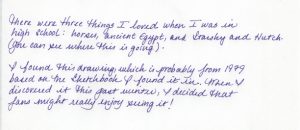 There were three things I loved when I was in
high school: horses, ancient Egypt, and Starsky and Hutch.
(You can see where this is going).
I found this drawing, which is probably from 1979
based on the sketchbook I found it in. When I
discovered it this past winter, I decided that
fans might really enjoy seeing it!